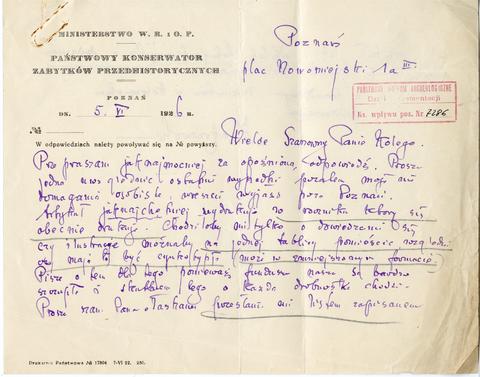 MINISTERSTWO W. R. i O. P.
PAŃSTWOWY KONSERWATOR
ZABYTKÓW PRZEDHISTORYCZNYCH
POZNAŃ
DN. 5. VI 1926 r.
№
W odpowiedziach należy powoływać się na № powyższy.
Poznań
plac Nowomiejski 1a III
PAŃSTWOWE MUZEUM ARCHEOLOGICZNE
Dział Dokumentacji
Ks. wpływu poz. Nr 7286
Wielce Szanowny Panie Kolego.
Przepraszam jak najmocniej za opóźnioną odpowiedź. Proszę
jedno uwzględnić ostatni wypadki
domagania osobiste, wreszcie wyjazd poza Poznań.
Artykuł jaknajchętniej wydrukuję w roczniku który się
obecnie drukuje. Chodziłoby mi tylko o dowiedzenie się
czy ilustracje możnaby na jednej tablicy pomieścić
mają być cynkotypje może w zmniejszonym formacie
Piszę o tem dla tego ponieważ fundusze nasze są bardzo
szczupłe i o każdą drobnostkę chodzi.
Proszę szan. Pana o łaskawe przesłanie mi listem zapisanem
Drukarnia Państwowa № 17804 7-VI 22. 250.